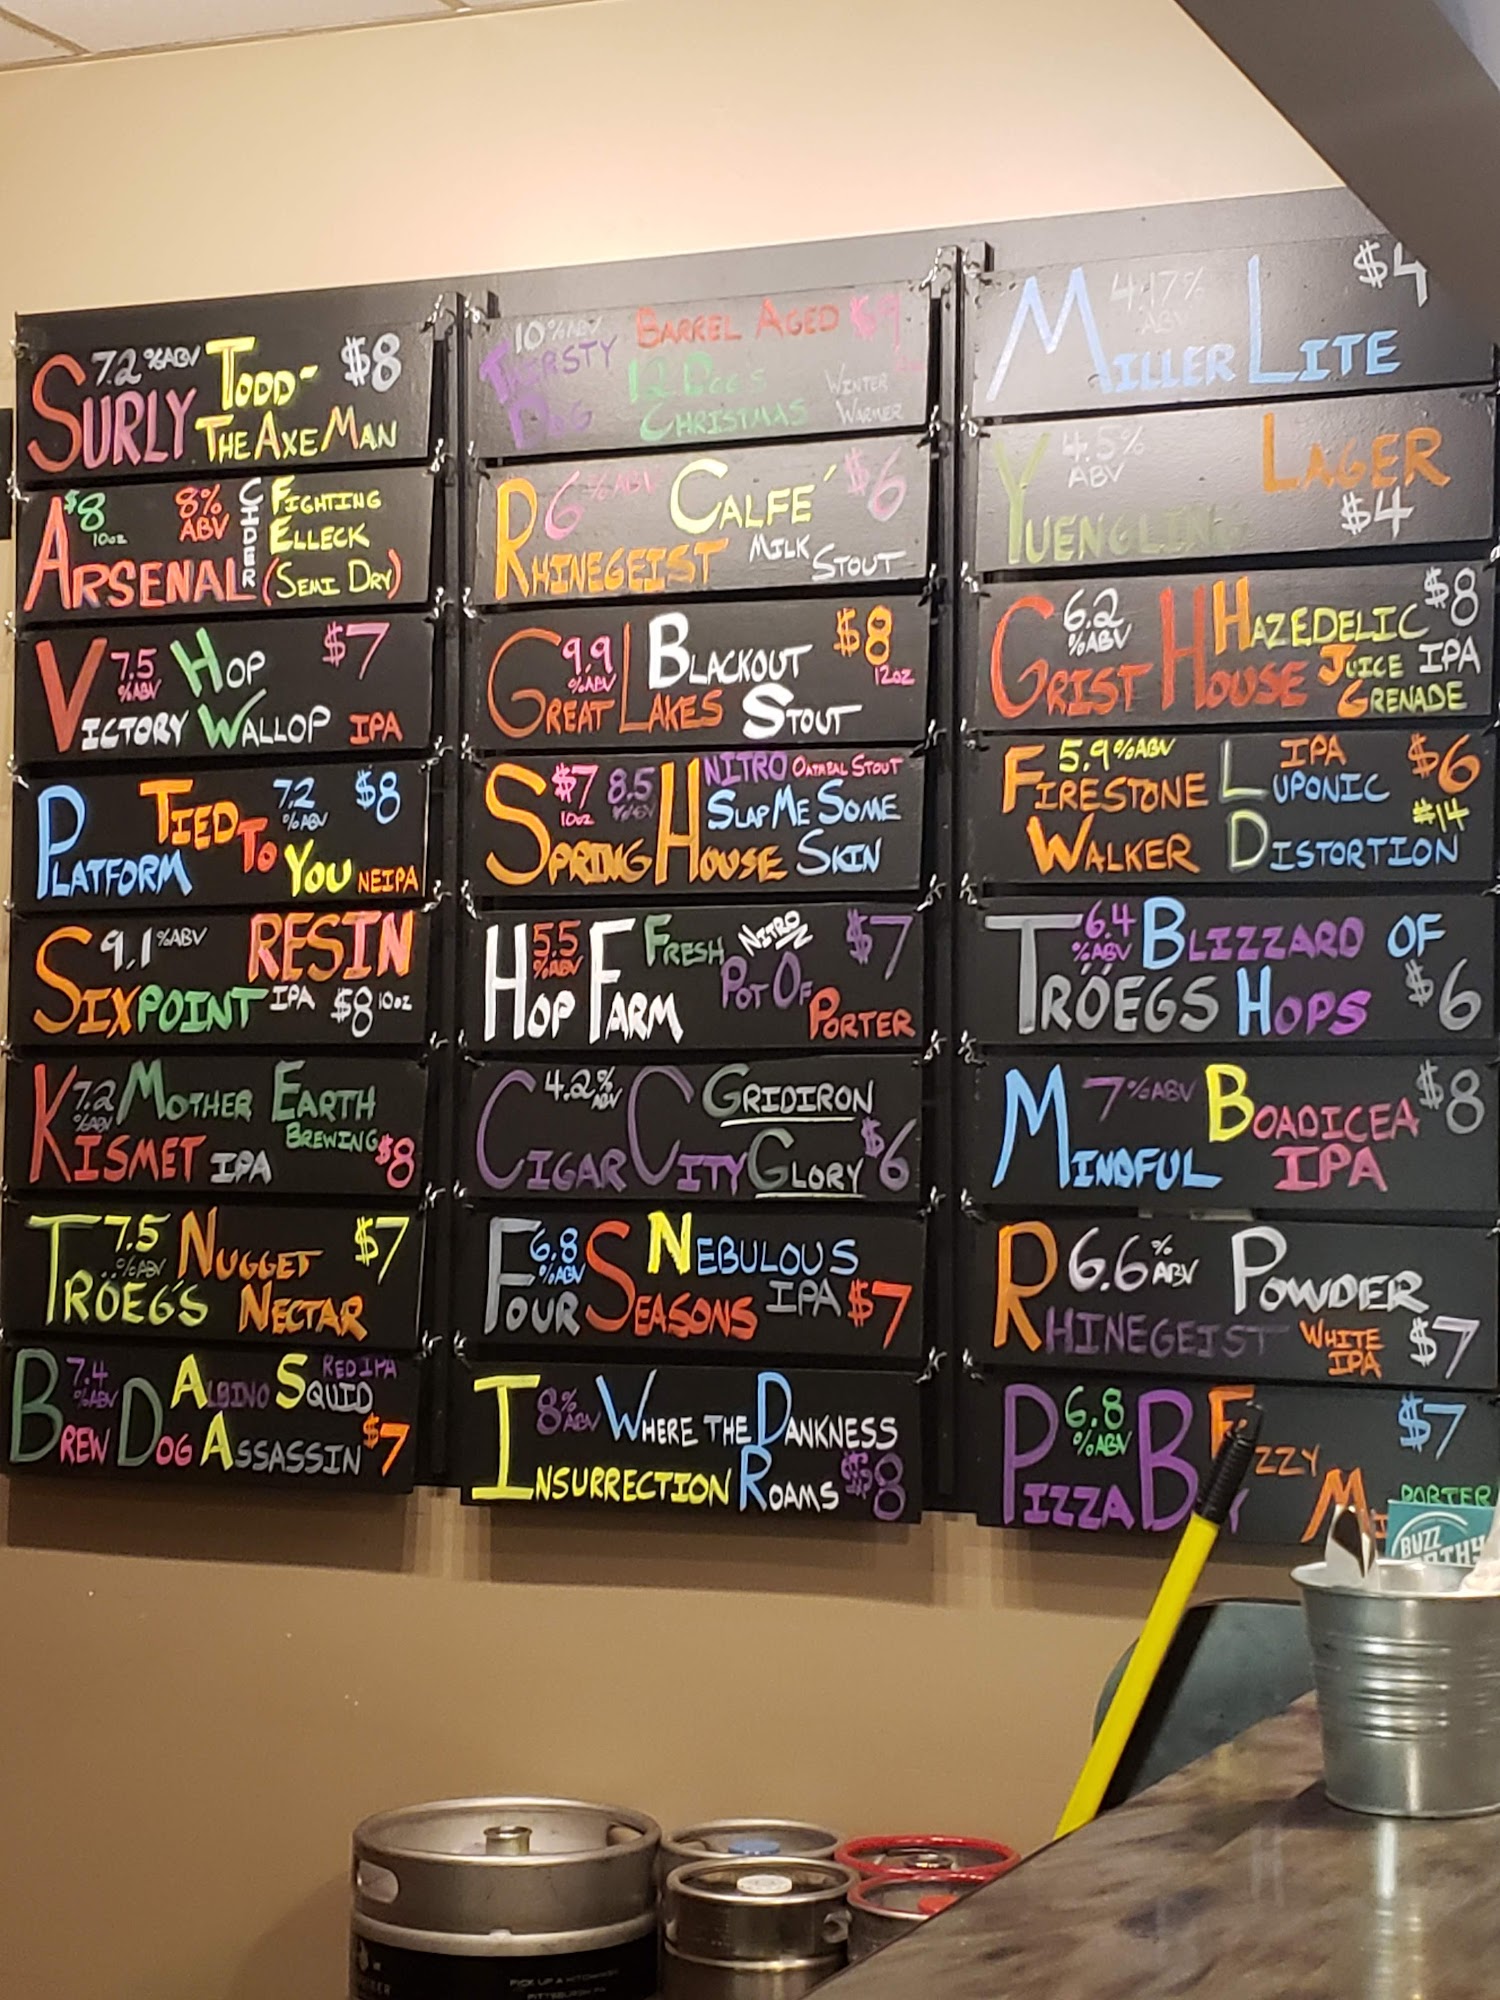 7.2 %ABV TODD~ $8
SURLY THE AXE MAN
$8 10oz 8% ABV CIDER FIGHTING
ELLECK
ARSENAL (SEMI DRY)
7.5 %ABV HOP $7
VICTORY WALLOP IPA
TIED TO 7.2 %ABV $8
PLATFORM YOU NEIPA
9.1 %ABV RESIN
SIXPOINT IPA $8 10oz
7.2 %ABV MOTHER EARTH
BREWING
KISMET IPA $8
7.5 %ABV NUGGET $7
TRÖEG'S NECTAR
7.4 %ABV ALBINO SQUID RED IPA
BREW DOG ASSASSIN $7
10 %ABV BARREL AGED $9
THIRSTY 12 DOGS WINTER
DOG CHRISTMAS WARMER
6 %ABV CALFÉ $6
RHINEGEIST MILK STOUT
9.9 %ABV BLACKOUT $8
12oz
GREAT LAKES STOUT
$7 10oz 8.5 %ABV NITRO OATMEAL STOUT
SLAP ME SOME
SPRING HOUSE SKIN
5.5 %ABV FRESH NITRO $7
POT OF
HOP FARM PORTER
4.2% ABV GRIDIRON
CIGAR CITY GLORY $6
6.8 %ABV NEBULOUS
FOUR SEASONS IPA $7
8% ABV WHERE THE DANKNESS
INSURRECTION ROAMS $8
4.17% ABV $4
MILLER LITE
4.5% ABV LAGER
YUENGLING $4
6.2 %ABV HAZEDELIC $8
JUICE IPA
GRIST HOUSE GRENADE
5.9 %ABV IPA $6
FIRESTONE LUPONIC
#14
WALKER DISTORTION
6.4 %ABV BLIZZARD OF
TRÖEGS HOPS $6
7 %ABV BOADICEA $8
MINDFUL IPA
6.6 % ABV POWDER
RHINEGEIST WHITE IPA $7
6.8 %ABV $7
PIZZA
PORTER
BUZZ
PICK UP A
PITTSBURGH, PA